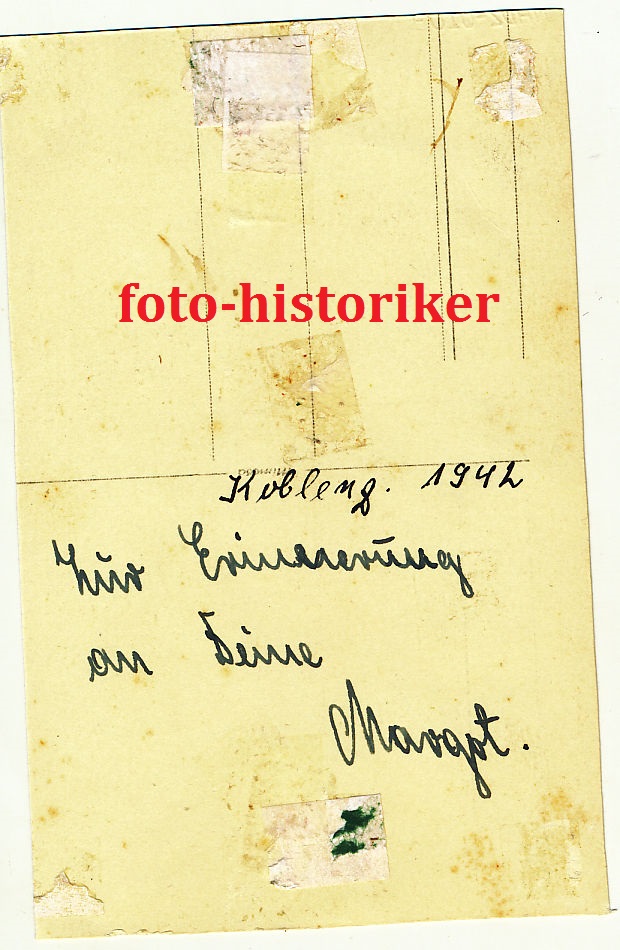 foto-historiker
Koblenz. 1942
Zur Erinnerung
an Deine
Margot.